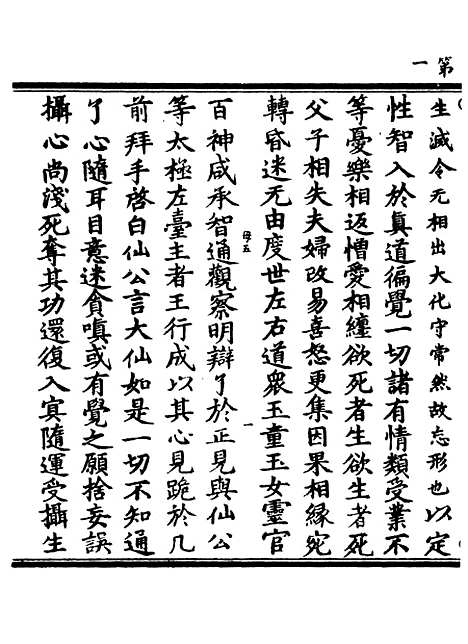 第一
生滅令无相出大化守常然故忘形也以定
性智入於眞道徧覺一切諸有情類受業不
等憂樂相返憎愛相纏欲死者生欲生者死
父子相失夫婦改易喜怒更集因果相縁宛
轉昏迷无由度世左右道衆玉童玉女靈官
母五
一
百神咸承智通觀察明辯了於正見與仙公
等太極左臺主者王行成以其心見跪於几
前拜手啓白仙公言大仙如是一切不知通
了心隨耳目意迷貪嗔或有覺之願捨妄誤
攝心尚淺死奪其功還復入㝠隨運受攝生